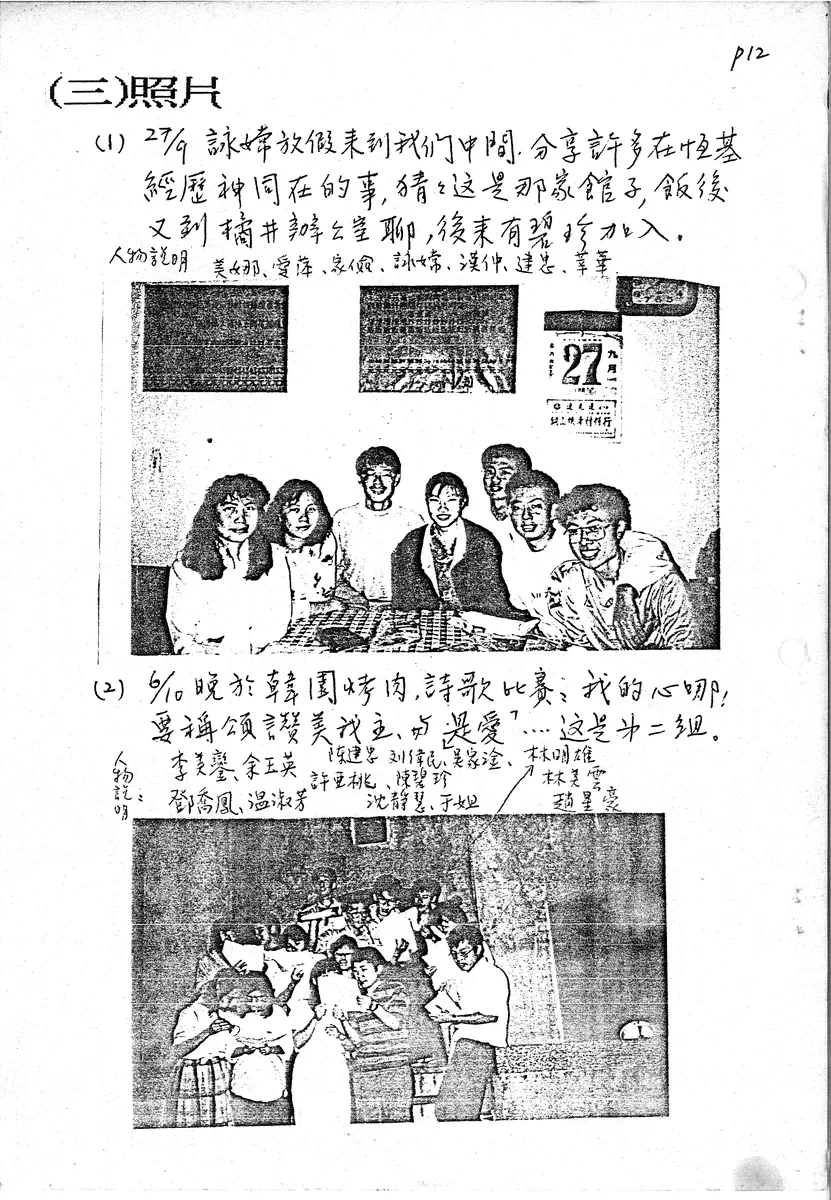 P12
(三)照片
(1) 27/9 詠嫦放假来到我们中間.分享許多在恒基
經歷神同在的事,猜々这是那家館子,飯後
又到橘井辦公室聊,後来有碧珍加入。
人物説明 美娜、愛萍、家儉、詠嫦、漢仲、建忠、華
27
九月
(2) 6/10 晚於韓園烤肉,詩歌比賽:我的心哪!
要稱頌讚美我主、与「是愛」....这是第二組。
人物説明:
李美鑾、余玉英 陳建忠 刘偉民、吳家淦、林明雄
許亞桃、陳碧珍 林美雲
鄧喬鳳、温淑芳 沈靜慧、于姐 趙星豪